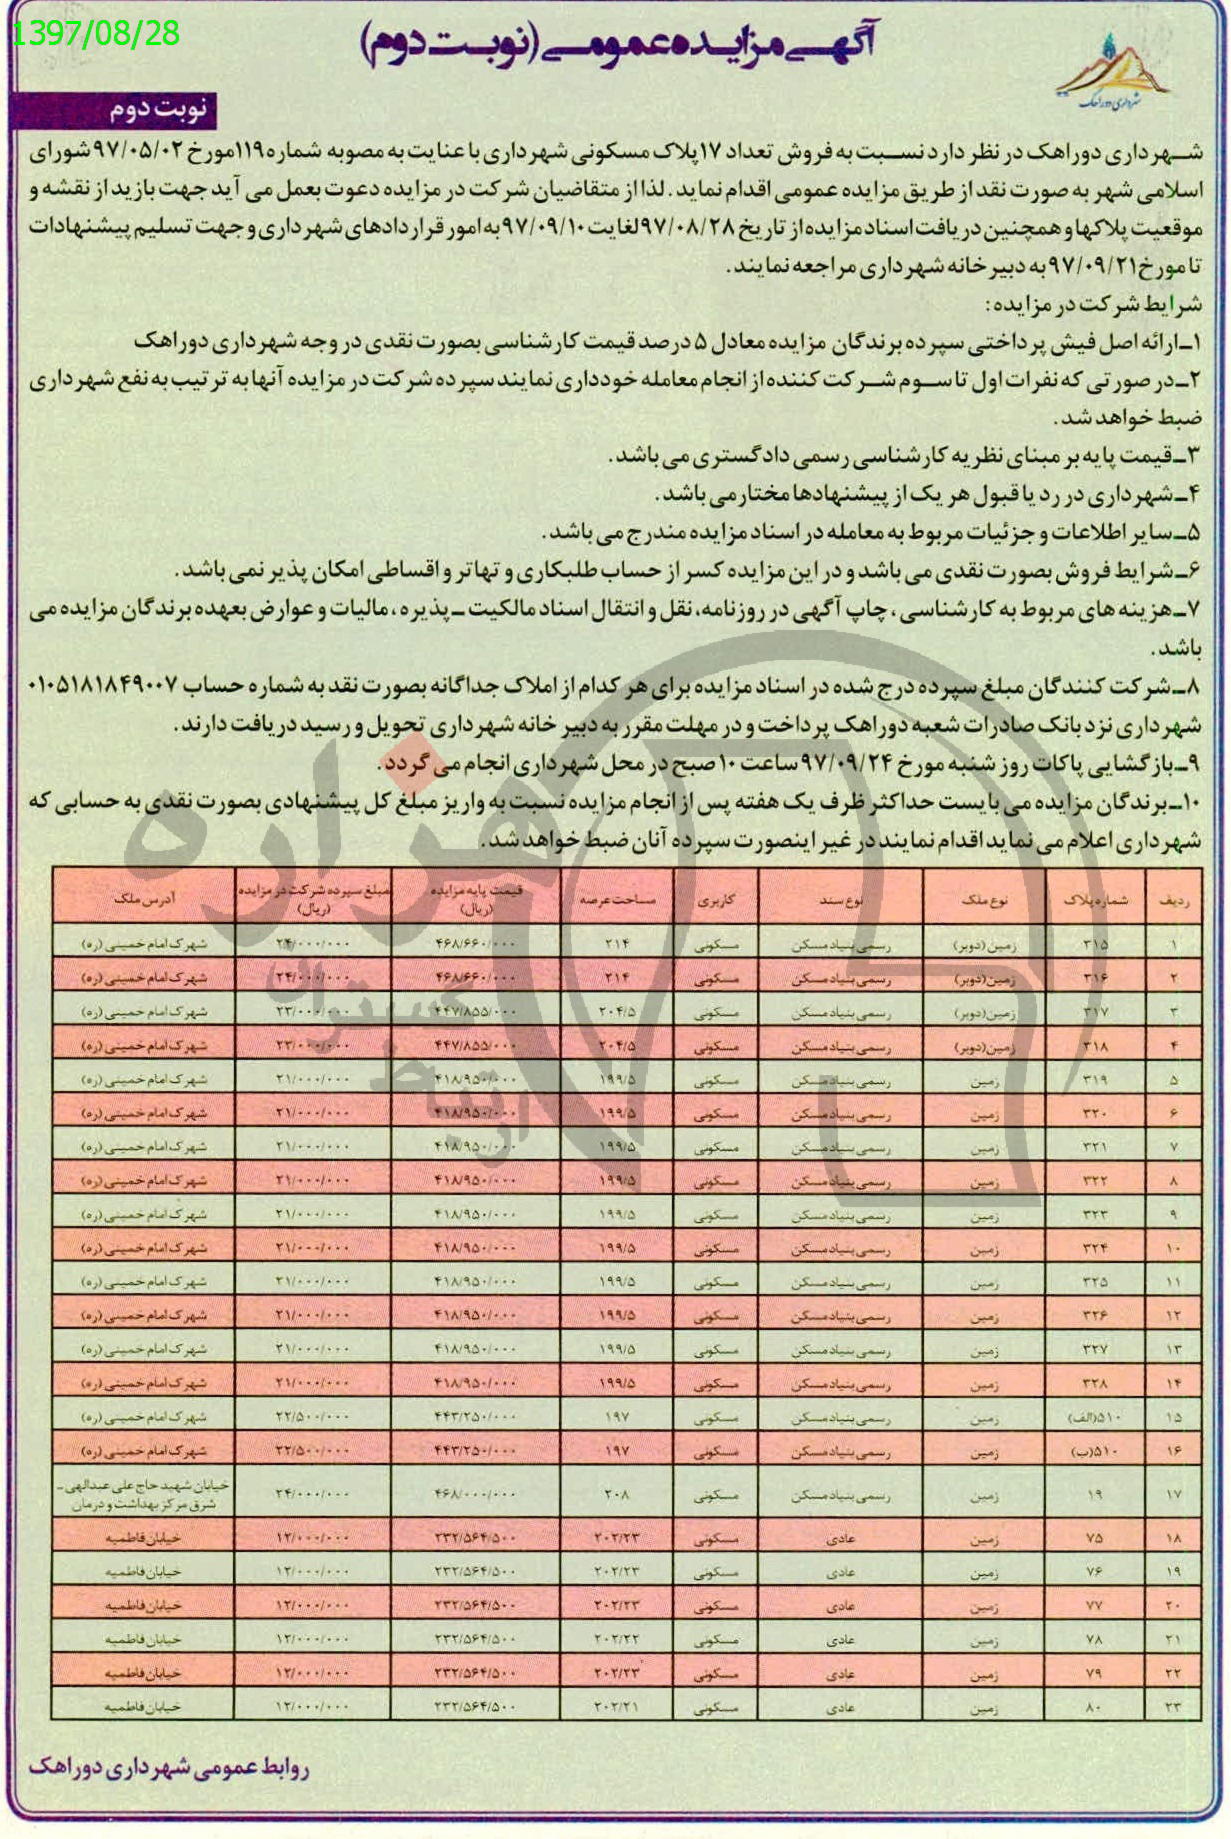 1397/08/28
آگهی مزایده عمومی (نوبت دوم)
شهرداری دوراهک
نوبت دوم
شهرداری دوراهک در نظر دارد نسبت به فروش تعداد ۱۷پلاک مسکونی شهرداری با عنایت به مصوبه شماره ۱۱۹مورخ ۹۷/۰۵/۰۲شورای
اسلامی شهر به صورت نقد از طریق مزایده عمومی اقدام نماید. لذا از متقاضیان شرکت در مزایده دعوت بعمل می آید جهت بازدید از نقشه و
موقعیت پلاکها و همچنین دریافت اسناد مزایده از تاریخ ۹۷/۰۸/۲۸لغایت ۹۷/۰۹/۱۰به امور قراردادهای شهرداری و جهت تسلیم پیشنهادات
تا مورخ ۹۷/۰۹/۲۱به دبیرخانه شهرداری مراجعه نمایند.
شرایط شرکت در مزایده:
۱ـارائه اصل فیش پرداختی سپرده برندگان مزایده معادل ۵ درصد قیمت کارشناسی بصورت نقدی در وجه شهرداری دوراهک
۲ـدر صورتی که نفرات اول تا سوم شرکت کننده از انجام معامله خودداری نمایند سپرده شرکت در مزایده آنها به ترتیب به نفع شهرداری
ضبط خواهد شد.
۳ـقیمت پایه بر مبنای نظریه کارشناسی رسمی دادگستری می باشد.
۴ـشهرداری در رد یا قبول هر یک از پیشنهادها مختار می باشد.
۵ـسایر اطلاعات و جزئیات مربوط به معامله در اسناد مزایده مندرج می باشد.
۶ـشرایط فروش بصورت نقدی می باشد و در این مزایده کسر از حساب طلبکاری و تهاتر و اقساطی امکان پذیر نمی باشد.
۷ـهزینه های مربوط به کارشناسی، چاپ آگهی در روزنامه، نقل و انتقال اسناد مالکیت ـ پذیره، مالیات و عوارض بعهده برندگان مزایده می
باشد.
۸ـشرکت کنندگان مبلغ سپرده درج شده در اسناد مزایده برای هر کدام از املاک جداگانه بصورت نقد به شماره حساب ۰۱۰۵۱۸۱۸۴۹۰۰۷
شهرداری نزد بانک صادرات شعبه دوراهک پرداخت و در مهلت مقرر به دبیر خانه شهرداری تحویل و رسید دریافت دارند.
۹ـبازگشایی پاکات روز شنبه مورخ ۹۷/۰۹/۲۴ساعت ۱۰صبح در محل شهرداری انجام می گردد.
۱۰ـبرندگان مزایده می بایست حداکثر ظرف یک هفته پس از انجام مزایده نسبت به واریز مبلغ کل پیشنهادی بصورت نقدی به حسابی که
شهرداری اعلام می نماید اقدام نمایند در غیر اینصورت سپرده آنان ضبط خواهد شد.
ردیف شماره پلاک نوع ملک نوع سند کاربری مساحت عرصه قیمت پایه مزایده (ریال) مبلغ سپرده شرکت در مزایده (ریال) آدرس ملک
۱ ۳۱۵ زمین (دوبر) رسمی بنیاد مسکن مسکونی ۲۱۴ ۴۶۸/۶۶۰/۰۰۰ ۲۴/۰۰۰/۰۰۰ شهرک امام خمینی (ره)
۲ ۳۱۶ زمین (دوبر) رسمی بنیاد مسکن مسکونی ۲۱۴ ۴۶۸/۶۶۰/۰۰۰ ۲۴/۰۰۰/۰۰۰ شهرک امام خمینی (ره)
۳ ۳۱۷ زمین (دوبر) رسمی بنیاد مسکن مسکونی ۲۰۴/۵ ۴۴۷/۸۵۵/۰۰۰ ۲۳/۰۰۰/۰۰۰ شهرک امام خمینی (ره)
۴ ۳۱۸ زمین (دوبر) رسمی بنیاد مسکن مسکونی ۲۰۴/۵ ۴۴۷/۸۵۵/۰۰۰ ۲۳/۰۰۰/۰۰۰ شهرک امام خمینی (ره)
۵ ۳۱۹ زمین رسمی بنیاد مسکن مسکونی ۱۹۹/۵ ۴۱۸/۹۵۰/۰۰۰ ۲۱/۰۰۰/۰۰۰ شهرک امام خمینی (ره)
۶ ۳۲۰ زمین رسمی بنیاد مسکن مسکونی ۱۹۹/۵ ۴۱۸/۹۵۰/۰۰۰ ۲۱/۰۰۰/۰۰۰ شهرک امام خمینی (ره)
۷ ۳۲۱ زمین رسمی بنیاد مسکن مسکونی ۱۹۹/۵ ۴۱۸/۹۵۰/۰۰۰ ۲۱/۰۰۰/۰۰۰ شهرک امام خمینی (ره)
۸ ۳۲۲ زمین رسمی بنیاد مسکن مسکونی ۱۹۹/۵ ۴۱۸/۹۵۰/۰۰۰ ۲۱/۰۰۰/۰۰۰ شهرک امام خمینی (ره)
۹ ۳۲۳ زمین رسمی بنیاد مسکن مسکونی ۱۹۹/۵ ۴۱۸/۹۵۰/۰۰۰ ۲۱/۰۰۰/۰۰۰ شهرک امام خمینی (ره)
۱۰ ۳۲۴ زمین رسمی بنیاد مسکن مسکونی ۱۹۹/۵ ۴۱۸/۹۵۰/۰۰۰ ۲۱/۰۰۰/۰۰۰ شهرک امام خمینی (ره)
۱۱ ۳۲۵ زمین رسمی بنیاد مسکن مسکونی ۱۹۹/۵ ۴۱۸/۹۵۰/۰۰۰ ۲۱/۰۰۰/۰۰۰ شهرک امام خمینی (ره)
۱۲ ۳۲۶ زمین رسمی بنیاد مسکن مسکونی ۱۹۹/۵ ۴۱۸/۹۵۰/۰۰۰ ۲۱/۰۰۰/۰۰۰ شهرک امام خمینی (ره)
۱۳ ۳۲۷ زمین رسمی بنیاد مسکن مسکونی ۱۹۹/۵ ۴۱۸/۹۵۰/۰۰۰ ۲۱/۰۰۰/۰۰۰ شهرک امام خمینی (ره)
۱۴ ۳۲۸ زمین رسمی بنیاد مسکن مسکونی ۱۹۹/۵ ۴۱۸/۹۵۰/۰۰۰ ۲۱/۰۰۰/۰۰۰ شهرک امام خمینی (ره)
۱۵ ۵۱۰(الف) زمین رسمی بنیاد مسکن مسکونی ۱۹۷ ۴۴۳/۲۵۰/۰۰۰ ۲۲/۵۰۰/۰۰۰ شهرک امام خمینی (ره)
۱۶ ۵۱۰(ب) زمین رسمی بنیاد مسکن مسکونی ۱۹۷ ۴۴۳/۲۵۰/۰۰۰ ۲۲/۵۰۰/۰۰۰ شهرک امام خمینی (ره)
۱۷ ۱۹ زمین رسمی بنیاد مسکن مسکونی ۲۰۸ ۴۶۸/۰۰۰/۰۰۰ ۲۴/۰۰۰/۰۰۰ خیابان شهید حاج علی عبدالهی ـ شرق مرکز بهداشت و درمان
۱۸ ۷۵ زمین عادی مسکونی ۲۰۲/۲۳ ۲۳۲/۵۶۴/۵۰۰ ۱۲/۰۰۰/۰۰۰ خیابان فاطمیه
۱۹ ۷۶ زمین عادی مسکونی ۲۰۲/۲۳ ۲۳۲/۵۶۴/۵۰۰ ۱۲/۰۰۰/۰۰۰ خیابان فاطمیه
۲۰ ۷۷ زمین عادی مسکونی ۲۰۲/۲۳ ۲۳۲/۵۶۴/۵۰۰ ۱۲/۰۰۰/۰۰۰ خیابان فاطمیه
۲۱ ۷۸ زمین عادی مسکونی ۲۰۲/۲۲ ۲۳۲/۵۶۴/۵۰۰ ۱۲/۰۰۰/۰۰۰ خیابان فاطمیه
۲۲ ۷۹ زمین عادی مسکونی ۲۰۲/۲۳ ۲۳۲/۵۶۴/۵۰۰ ۱۲/۰۰۰/۰۰۰ خیابان فاطمیه
۲۳ ۸۰ زمین عادی مسکونی ۲۰۲/۲۱ ۲۳۲/۵۶۴/۵۰۰ ۱۲/۰۰۰/۰۰۰ خیابان فاطمیه
روابط عمومی شهرداری دوراهک